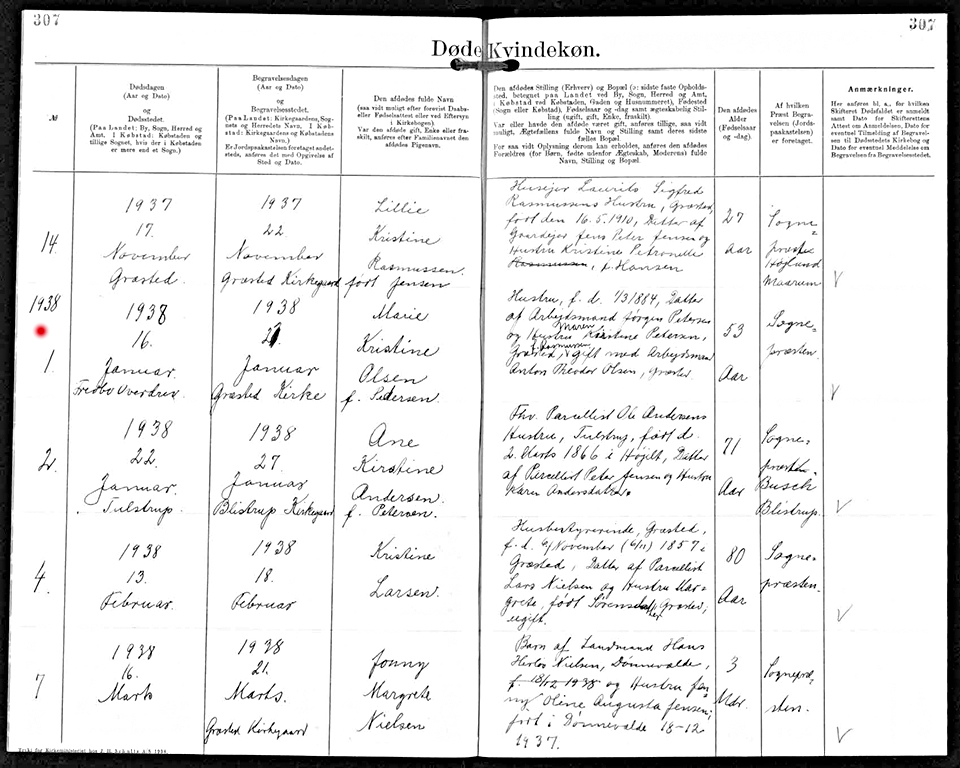 307
307
Døde Kvindekøn.
№
Dødsdagen
(Aar og Dato)
og
Dødsstedet.
(Paa Landet: By, Sogn, Herred og
Amt. I Købstad: Købstaden og
tillige Sognet, hvis der i Købstaden
er mere end et Sogn.)
Begravelsesdagen
(Aar og Dato)
og
Begravelsesstedet.
(Paa Landet: Kirkegaardens, Sog-
nets og Herredets Navn, I Køb-
stad: Kirkegaardens og Købstadens
Navn.)
Er Jordspaakastelsen foretaget andet-
steds, anføres det med Opgivelse af
Sted og Dato.
Den afdødes fulde Navn
(saa vidt muligt efter forevist Daabs-
eller Fødselsattest eller ved Eftersyn
i Kirkebogen)
Var den afdøde gift, Enke eller fra-
skilt, anføres efter Familienavnet den
afdødes Pigenavn.
Den afdødes Stilling (Erhverv) og Bopæl (ɔ: sidste faste Opholds-
sted, betegnet paa Landet ved By, Sogn, Herred og Amt,
i Købstad ved Købstaden, Gaden og Husnummeret), Fødested
(Sogn eller Købstad), Fødselsaar og -dag samt ægteskabelig Stil-
ling (ugift, gift, Enke, fraskilt).
Var eller havde den afdøde været gift, anføres tillige, saa vidt
muligt, Ægtefællens fulde Navn og Stilling samt deres sidste
fælles Bopæl.
For saa vidt Oplysning derom kan erholdes, anføres den afdødes
Forældres (for Børn, fødte udenfor Ægteskab, Moderens) fulde
Navn, Stilling og Bopæl.
Den afdødes
Alder
(Fødselsaar
og -dag).
Af hvilken
Præst Begra-
velsen (Jords-
paakastelsen)
er foretaget.
Anmærkninger.
Her anføres bl. a., for hvilken
Skifteret Dødsfaldet er anmeldt
samt Dato for Skifterettens
Attest om Anmeldelsen, Dato for
eventuel Tilmelding af Begravel-
sen til Dødsstedets Kirkebog og
Dato for eventuel Meddelelse om
Begravelsen fra Begravelsesstedet.
14
1937
17.
November
Græsted.
1937
22
November
Græsted Kirkegaard
Lillie
Kristine
Rasmussen
født Jensen
Husejer Laurits Sigfred
Rasmussens Hustru, Græsted,
født den 16.5.1910, Datter af
Gaardejer Jens Peter Jensen og
Hustru Kristine Petronelle
Rasmussen, f. Hansen
27
Aar
Sogne=
præst
Højlund
Maarum
V
1938
1.
1938
16.
Januar.
Fredbo Overdrev
1938
21
Januar
Græsted Kirke
Marie
Kristine
Olsen
f. Pedersen.
Hustru, f. d. 1/3 1884, Datter
af Arbejdsmand Jørgen Petersen
og Hustru Maren Kirstine Petersen,
f. Rasmussen
Græsted, gift med Arbejdsmand
Anton Theodor Olsen, Græsted.
53
Aar
Sogne=
præsten.
V
2.
1938
22.
Januar.
Tulstrup.
1938
27.
Januar
Blistrup Kirkegaard
Ane
Kirstine
Andersen
f. Petersen.
Fhv. Parcellist Ole Andersens
Hustru, Tulstrup, født d.
2. Marts 1866 i Højelt, Datter
af Parcellist Peter Jensen og Hustru
Karen Andersdatter.
71
Aar
Sogne=
præsten
Busch
Blistrup.
V
4.
1938
13.
Februar.
1938
18.
Februar
Kristine
Larsen.
Husbestyrerinde, Græsted,
f. d. 6/ November (6/11) 1857 i
Græsted, Datter af Parcellist
Lars Nielsen og Hustru Mar-
grete, født Sørensdatter, Græsted;
ugift.
80
Aar
Sogne=
præsten.
V
7
1938
16.
Marts
1938
21.
Marts.
Græsted Kirkegaard
Jonny
Margrete
Nielsen
Barn af Landmand Hans
Herlov Nielsen, Dønnevælde,
f. 18/12 1938 og Hustru Jen-
ny Oline Augusta Jensen;
født i Dønnevælde 18-12
1937.
3
Mdr.
Sognepræ=
sten.
V
Trykt for Kirkeministeriet hos J. H. Schultz A/S 1934.